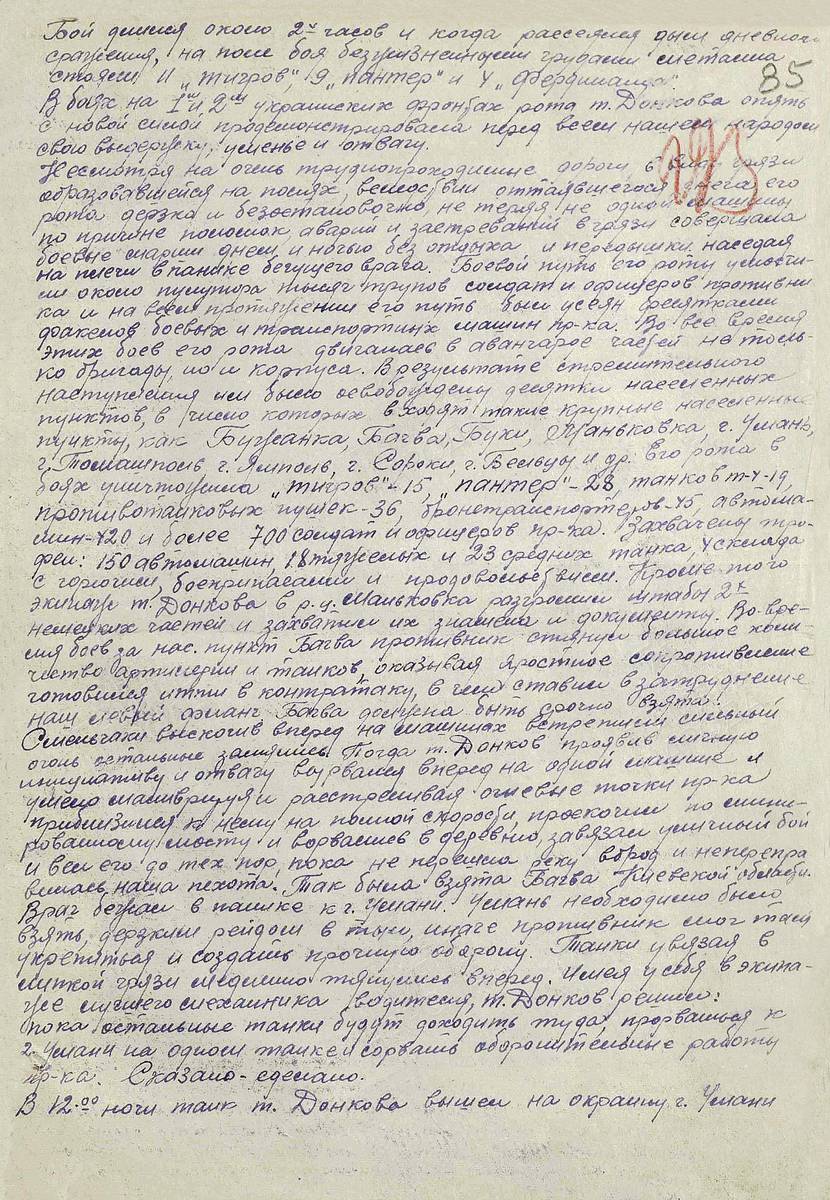 Бой длился около 2х часов и когда рассеялся дым дневного
сражения, на поле боя безжизненными грудами металла
стояли 11 „тигров", 19 „пантер" и 4 „Фердинанда".
85
В боях на I ом и 2 ом украинских фронтах рота т. Донкова опять
с новой силой продемонстрировала перед всем нашем народом
свою выдержку, уменье и отвагу.
Несмотря на очень труднопроходимые дороги, грязи
образовавшейся на полях, вследствии оттаявшегося снега, его
рота дерзка и безостановочно, не теряя не одной машины
по причине поломок, аварии и застреваний в грязи совершала
боевые марши днем и ночью без отдыха и передышки наседая
на плечи в панике бегущего врага. Боевой путь его роты устлили
около полутора тысяч трупов солдат и офицеров противни
ка и на всем протяжении его путь был усеян десятками
факелов боевых и транспортных машин пр-ка. Во все время
этих боев его рота двигалась в авангарде частей не толь-
ко бригады, но и корпуса. В результате стремительного
наступления им было освобождены десятки населенных
пунктов, в число которых входят такие крупные населенные
пункты, как Бужанка, Багва, Буки, Маньковка, г. Умань,
г. Томашполь, г. Ямполь, г. Сороки, г. Бельцы и др. Его рота в
боях уничтожила „тигров"-15, „пантер"-28, танков т-4-19,
противотанковых пушек-36, бронетранспортеров-45, автома-
шин-420 и более 700 солдат и офицеров пр-ка. Захвачены тро-
феи: 150 автомашин, 18 тяжелых и 23 средних танка, 4 склада
с горючим, боеприпасами и продовольствием. Кроме того
экипаж т. Донкова в р.ц. Маньковка разгромил штабы 2х
немецких частей и захватил их знамена и документы. Во вре-
мя боев за нас. пункт Багва противник стянул большое коли-
чество артиллерии и танков, оказывая яростное сопротивление
готовился итти в контратаку, в чем ставил в затруднение
наш левый фланг. Багва должна быть срочно взята.
Смельчаки выскочив вперед на машинах встретили сильный
огонь остальные замялись. Тогда т. Донков проявив личную
инициативу и отвагу вырвался вперед на одной машине и
умело маневрируя и расстреливая огневые точки пр-ка
приблизился к нему на полной скорости, проскочил по мини-
рованному мосту и ворвались в деревню, завязал уличный бой
и вел его до тех пор, пока не перешла реку вброд и неперепра
вилась наша пехота. Так была взята Багва Киевской области.
Враг бежал в панике к г. Умани. Умань необходимо было
взять, дерзким рейдом в тыл, иначе противник смог там
укрепиться и создать прочную оборону. Танки увязая в
липкой грязи медленно тянулись вперед. Имея у себя в экипа-
же лучшего механника водителя, т. Донков решил:
пока остальные танки будут доходить туда, прорваться к
г. Умани на одном танке и сорвать оборонительные работы
пр-ка. Сказано-сделано.
В 12.00 ночи танк т. Донкова вышел на окраину г. Умани